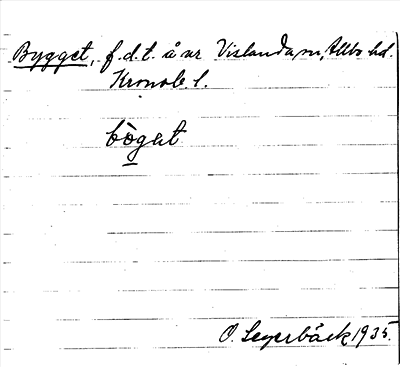 Bygget, f.d.t. å ur Vislanda sn, Allbo hd.
Kronob. l.
bògat
O. Seyerbäck 1935.